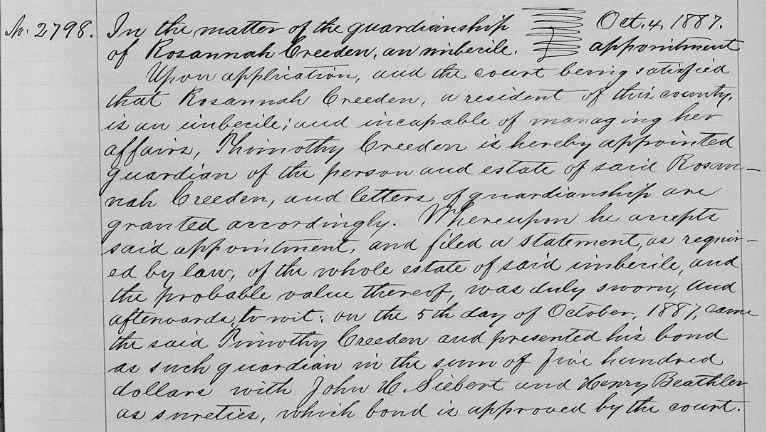 No. 2798. In the matter of the guardianship Oct. 4, 1887.
of Rosannah Creeden, an imbecile. appointment
Upon application, and the court being satisfied
that Rosannah Creeden, a resident of this county,
is an imbecile; and incapable of managing her
affairs, Timothy Creeden is hereby appointed
guardian of the person and estate of said Rosan-
nah Creeden, and letters of guardianship are
granted accordingly. Whereupon he accepts
said appointment, and filed a statement, as requir-
ed by law, of the whole estate of said imbecile, and
the probable value thereof, was duly sworn, and
afterwards, to wit: on the 5th day of October, 1887, came
the said Timothy Creeden and presented his bond
as such guardian in the sum of five hundred
dollars with John H. Siebert and Henry Beathler
as sureties, which bond is approved by the court.